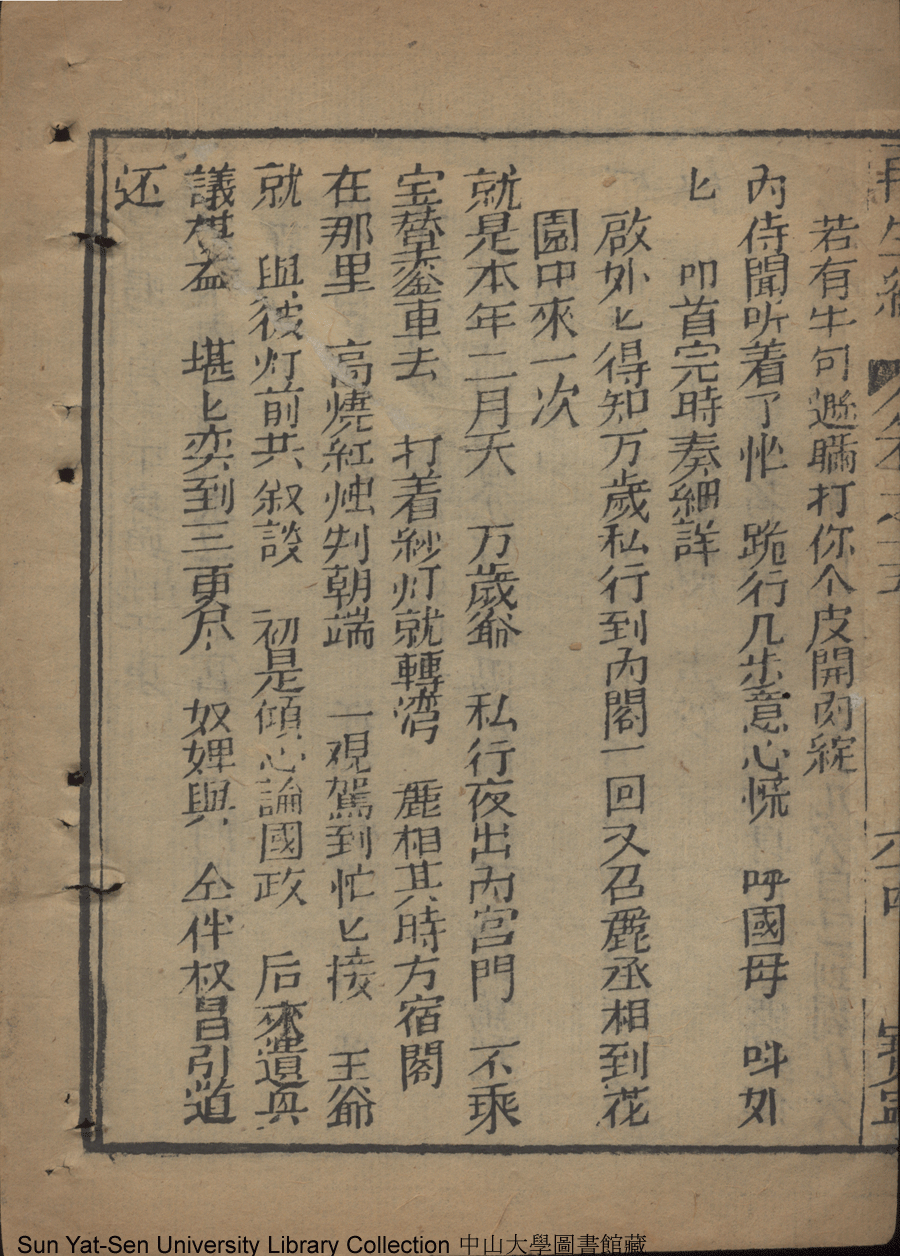 再生緣 卷之十五
若有半句遮瞞打你个皮開肉綻
內侍聞听着了忙 跪行几步意心慌 呼國母 呌外
匕 叩首完時奏細詳
啟外匕得知万歲私行到內閣一回又召酈丞相到花
園中來一次
就是本年二月天 万歲爺 私行夜出內宮門 不乘
宝輦車去 打着紗灯就轉湾 酈相其時方宿閣
在那里 高燒紅燭判朝端 一覌駕到忙匕接 王爺
就 與彼灯前共叙談 初是傾心論國政 后來遺興
議棋盃 堪匕奕到三更尽 奴婢與 仝伴权昌引道
还
Sun Yat-Sen University Library Collection 中山大學圖書館藏